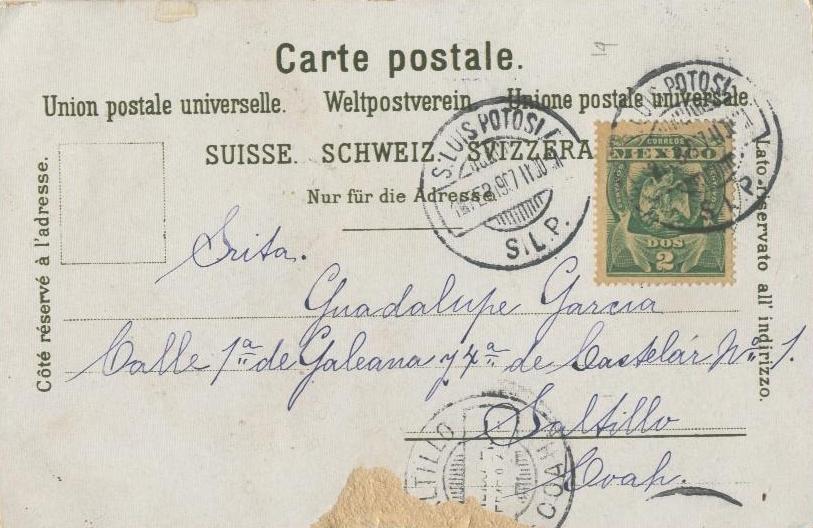 19
Carte postale.
Union postale universelle. Weltpostverein. Unione postale universale.
SUISSE. SCHWEIZ. SVIZZERA
Nur für die Adresse
Côté réservé à l'adresse.
Lato riservato all' indirizzo.
S. LUIS POTOSI
FEB 1907
S.L.P.
LUIS POTOSI
S.L.P.
CORREOS
MEXICO
DOS
2
Srita.
Guadalupe Garcia
Calle 1ª de Galeana y 4ª de Castelár Nº 1.
Saltillo
Coah.
LTILLO
COAH